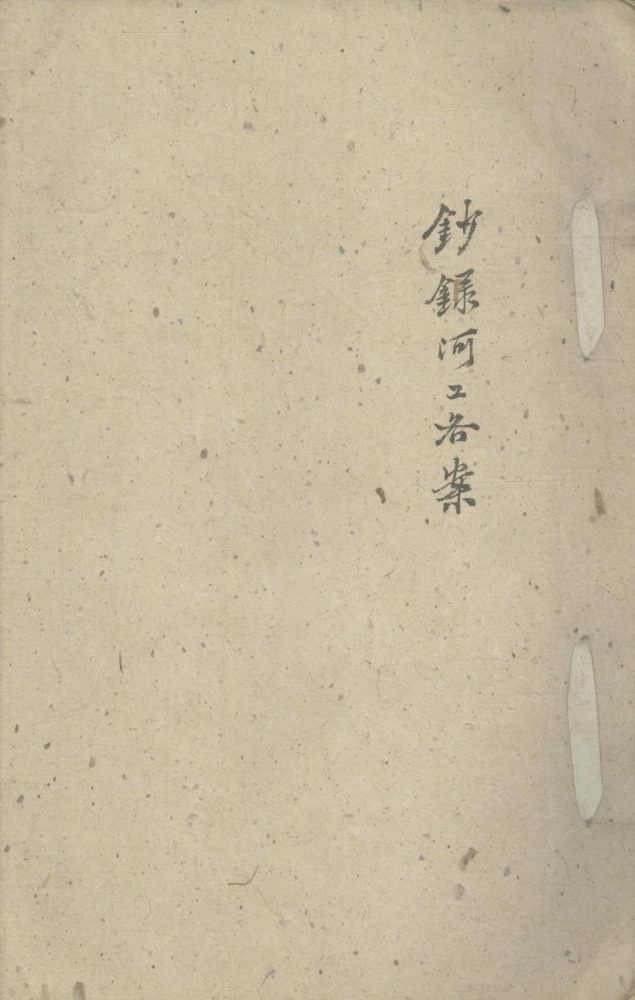 鈔録河工各案